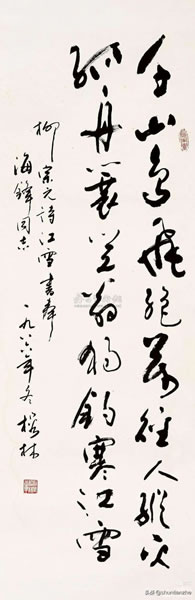 千山鸟飞绝万径人踪灭
孤舟蓑笠翁独钓寒江雪
柳宗元诗江雪书奉
海锋同志
一九八六年冬 林